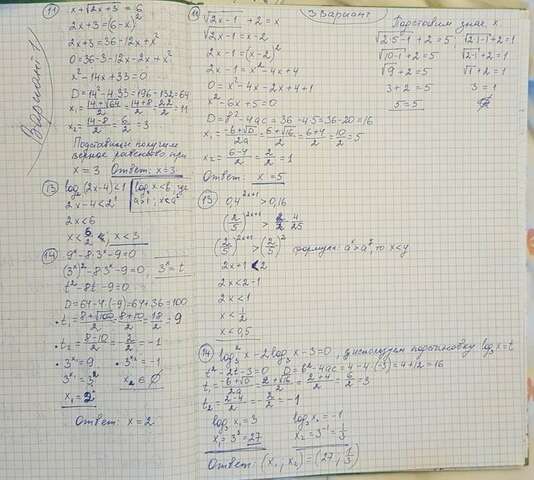 Вариант 1
11 x+√2x+3 = 6
2x+3=(6-x)²
2x+3=36-12x+x²
0=36-3-12x-2x+x²
x²-14x+33=0
D=14²-4·33=196-132=64
x₁=14+√64/2=14+8/2=22/2=11
x₂=14-8/2=6/2=3
Подставив получим
верное равенство при
x=3 Ответ: x=3
13 log₂(2x-4)<1
2x-4<2¹
2x<6
x<6/2, x<3
14 9ˣ-8·3ˣ-9=0
(3ˣ)²-8·3ˣ-9=0, 3ˣ=t
t²-8t-9=0
D=64-4·(-9)=64+36=100
t₁=8+√100/2=8+10/2=18/2=9
t₂=8-10/2=-2/2=-1
3ˣ¹=9 3ˣ²=-1
3ˣ¹=3² x₂∈∅
x₁=2
Ответ: x=2
3 Вариант
11 √2x-1+2=x
√2x-1=x-2
2x-1=(x-2)²
2x-1=x²-4x+4
0=x²-4x-2x+4+1
x²-6x+5=0
D=b²-4ac=36-45=36-20=16
x₁=-b+√D/2a=6+√16/2=6+4/2=10/2=5
x₂=6-4/2=2/2=1
Ответ: x=5
Подставим знак x
√2·5-1+2=5 √2·1-1+2=1
√10-1+2=5 √2-1+2=1
√9+2=5 √1+2=1
3+2=5 3=1
5=5
13 0,4²ˣ⁺¹>0,16
(2/5)²ˣ⁺¹>4/25
(2/5)²ˣ⁺¹>(2/5)² формулы: aˣ>aʸ, то x<y
2x+1<2
2x<2-1
2x<1
x<1/2
x<0,5
14 log₃²x-2log₃x-3=0, используем подстановку log₃x=t
t²-2t-3=0 D=b²-4ac=4-4·(-3)=4+12=16
t₁=-b+√D/2a=2+√16/2=2+4/2=6/2=3
t₂=2-4/2=-2/2=-1
log₃x₁=3 log₃x₂=-1
x₁=3³=27 x₂=3⁻¹=1/3
Ответ: (x₁; x₂)=(27; 1/3)